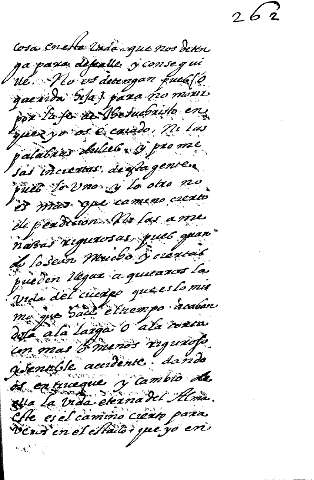 262
cosa en esta Vida que nos deten
ga para desealle y consegui
lle. No os detengan pues (O
querida hija) para no morir
por la fe de Jhesuchristo en
que yo os e criado. Ni las
palabras dulces y prome
sas inciertas de esta gente
pues lo uno y lo otro no
es mas que camino cierto
de perdicion. Ni las ame
nazas rigurosas, pues quan
do lo sean mucho y ciertas
pueden llegar a quitaros la
Vida del cuerpo que es lo mis
mo que hace el tiempo acaban
dola a la larga o a la corta
con mas o menos riguroso
y sensible accidente. dando
os en trueque y cambio de
ella la Vida eterna del Alma.
este es el camino cierto para
veros en el estado que yo en